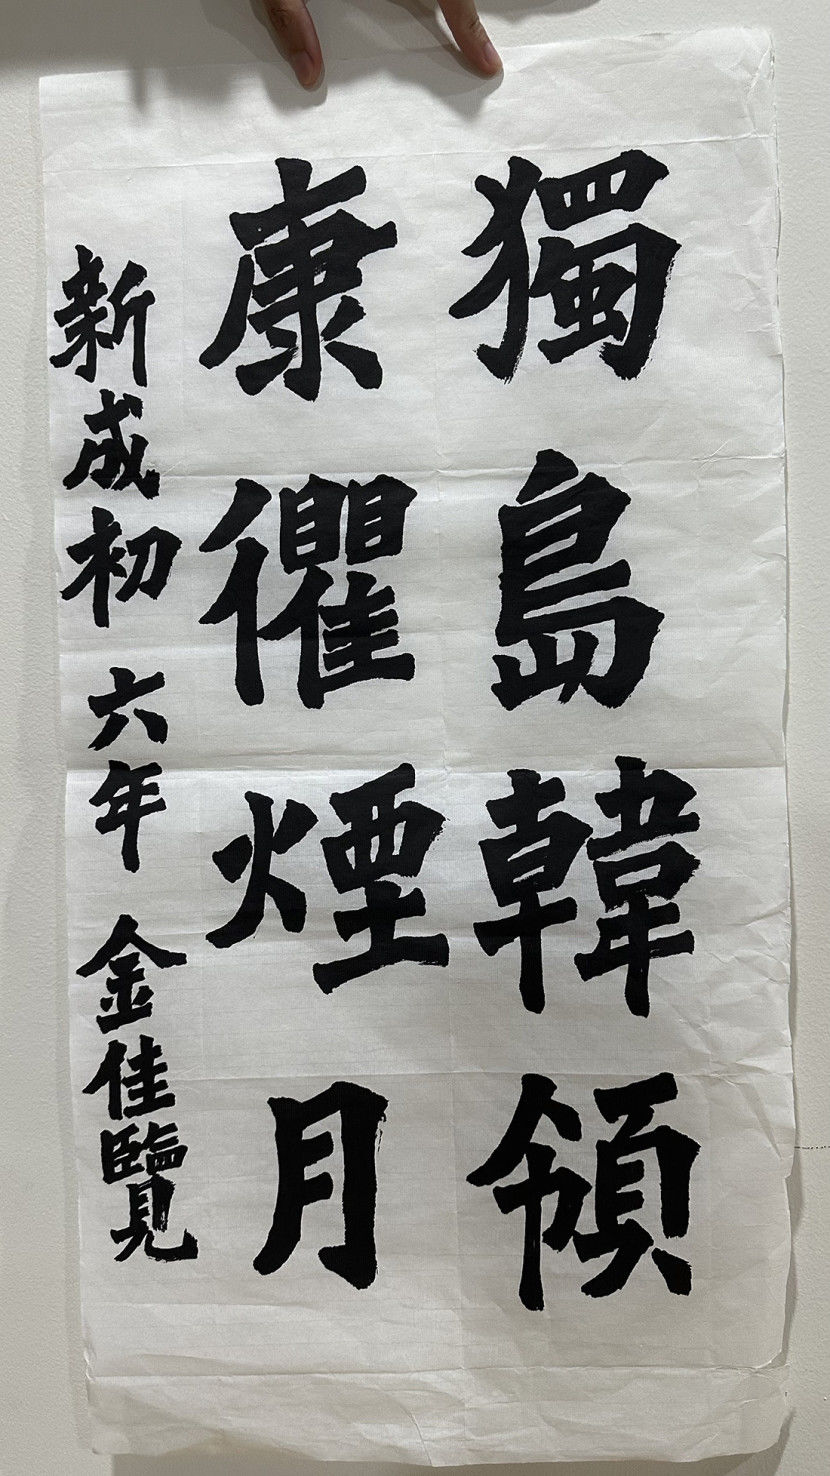 獨島韓領
康忂煙月
新成初 六年 金佳覽